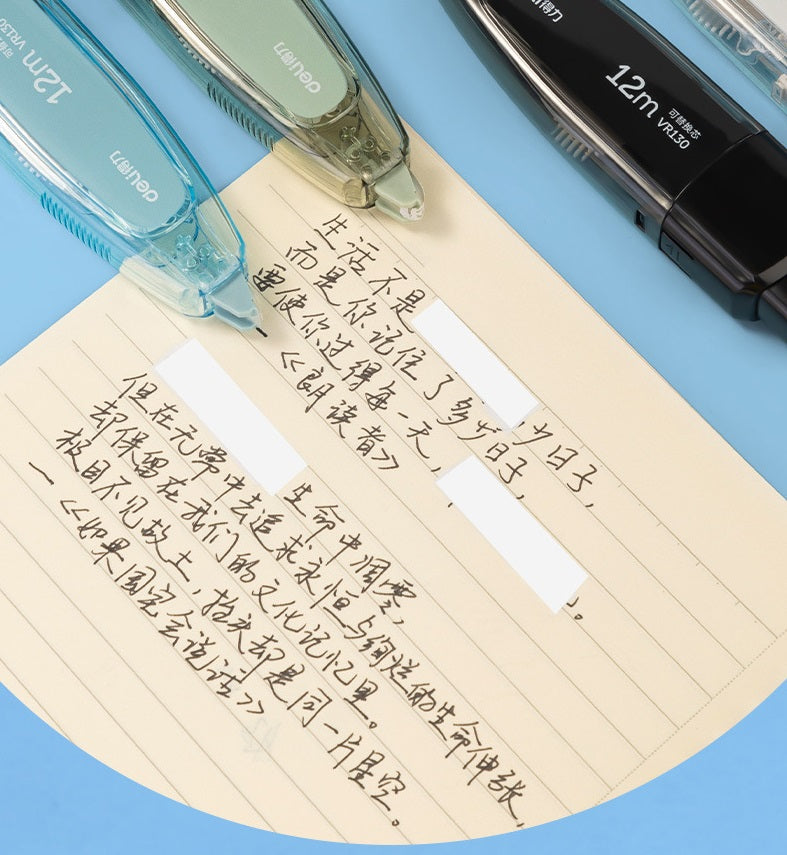 12m 可替换芯
VR130
deli得力
deli得力
deli得力
12m 可替换芯
VR130
生活不是 少日子,
而是你记住了多少日子,
要使你过得每一天, 。
《朗读者》
生命中凋零,
但在无常中去追求永恒与绚烂的生命伸张,
却保留在我们的文化记忆里。
极目不见故土,抬头却是同一片星空。
—《如果国宝会说话》